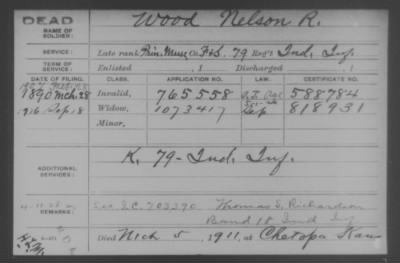 DEAD
NAME OF SOLDIER:
Wood Nelson R.
SERVICE:
Late rank Prin. Musc Co. F&S. 79 Reg't Ind. Inf.
TERM OF SERVICE:
Enlisted , 1 Discharged , 1
DATE OF FILING. CLASS. APPLICATION NO. LAW. CERTIFICATE NO.
1890 Mch. 28 Invalid, 765558 588784
1916 Sep. 18 Widow, 1073417 818931
Minor,
ADDITIONAL SERVICES:
K. 79- Ind. Inf.
REMARKS:
See I.C. 703390 Thomas S. Richardson
Band 18 Ind Inf
Died Mch 5, 1911, at Chetopa Kans